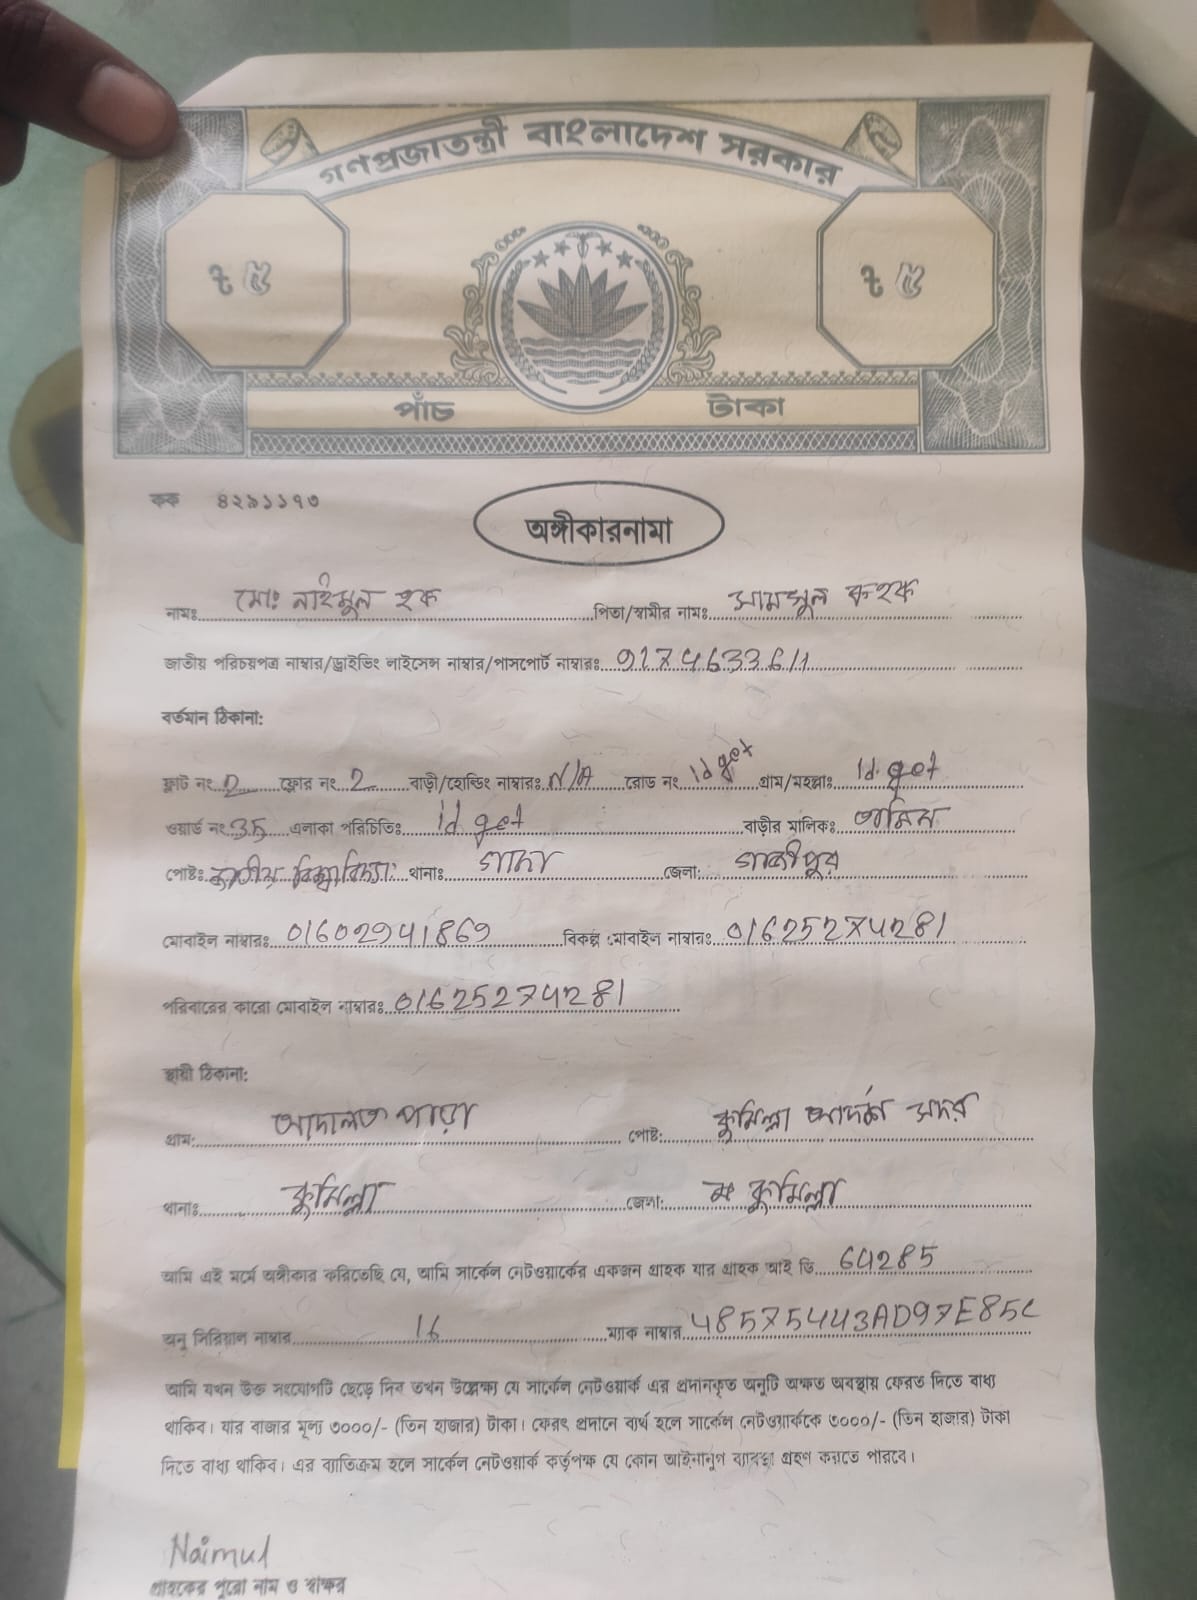 গণপ্রজাতন্ত্রী বাংলাদেশ সরকার
৳ ৫ ৳ ৫
পাঁচ টাকা
কক ৪২৯১১৭৩
অঙ্গীকারনামা
নামঃ মোঃ নাইমুল হক পিতা/স্বামীর নামঃ সামসুল হক
জাতীয় পরিচয়পত্র নাম্বার/ড্রাইভিং লাইসেন্স নাম্বার/পাসপোর্ট নাম্বারঃ 9174633611
বর্তমান ঠিকানা:
ফ্লাট নং ফ্লোর নং 2 বাড়ী/হোল্ডিং নাম্বারঃ N/A রোড নং Id get গ্রাম/মহল্লাঃ Id get
ওয়ার্ড নং 35 এলাকা পরিচিতিঃ Id get বাড়ীর মালিকঃ আমিন
পোষ্টঃ জাতীয় থানাঃ গাছা জেলা: গাজীপুর
মোবাইল নাম্বারঃ 01602941869 বিকল্প মোবাইল নাম্বারঃ 01625274281
পরিবারের কারো মোবাইল নাম্বারঃ 01625274281
স্থায়ী ঠিকানা:
গ্রাম: আদালত পাড়া পোষ্ট: কুমিল্লা আদর্শ সদর
থানাঃ কুমিল্লা জেলা: কুমিল্লা
আমি এই মর্মে অঙ্গীকার করিতেছি যে, আমি সার্কেল নেটওয়ার্কের একজন গ্রাহক যার গ্রাহক আই ডি 64285
অনু সিরিয়াল নাম্বার 16 ম্যাক নাম্বার 48575443AD97E85C
আমি যখন উক্ত সংযোগটি ছেড়ে দিব তখন উল্লেক্ষ্য যে সার্কেল নেটওয়ার্ক এর প্রদানকৃত অনুটি অক্ষত অবস্থায় ফেরত দিতে বাধ্য
থাকিব। যার বাজার মূল্য ৩০০০/- (তিন হাজার) টাকা। ফেরৎ প্রদানে ব্যর্থ হলে সার্কেল নেটওয়ার্ককে ৩০০০/- (তিন হাজার) টাকা
দিতে বাধ্য থাকিব। এর ব্যাতিক্রম হলে সার্কেল নেটওয়ার্ক কর্তৃপক্ষ যে কোন আইনানুগ ব্যাবস্থা গ্রহণ করতে পারবে।
Naimul
গ্রাহকের পুরো নাম ও স্বাক্ষর